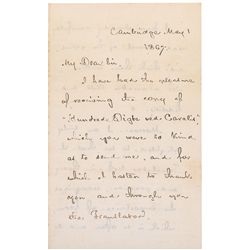 Cambridge May 1
1867.
My Dear Sir,
I have had the pleasure
of receiving the copy of
"Hundred Digte ved Caralis",
which you were so kind
as to send me, and for
which I hasten to thank
you and through you
the Translator.